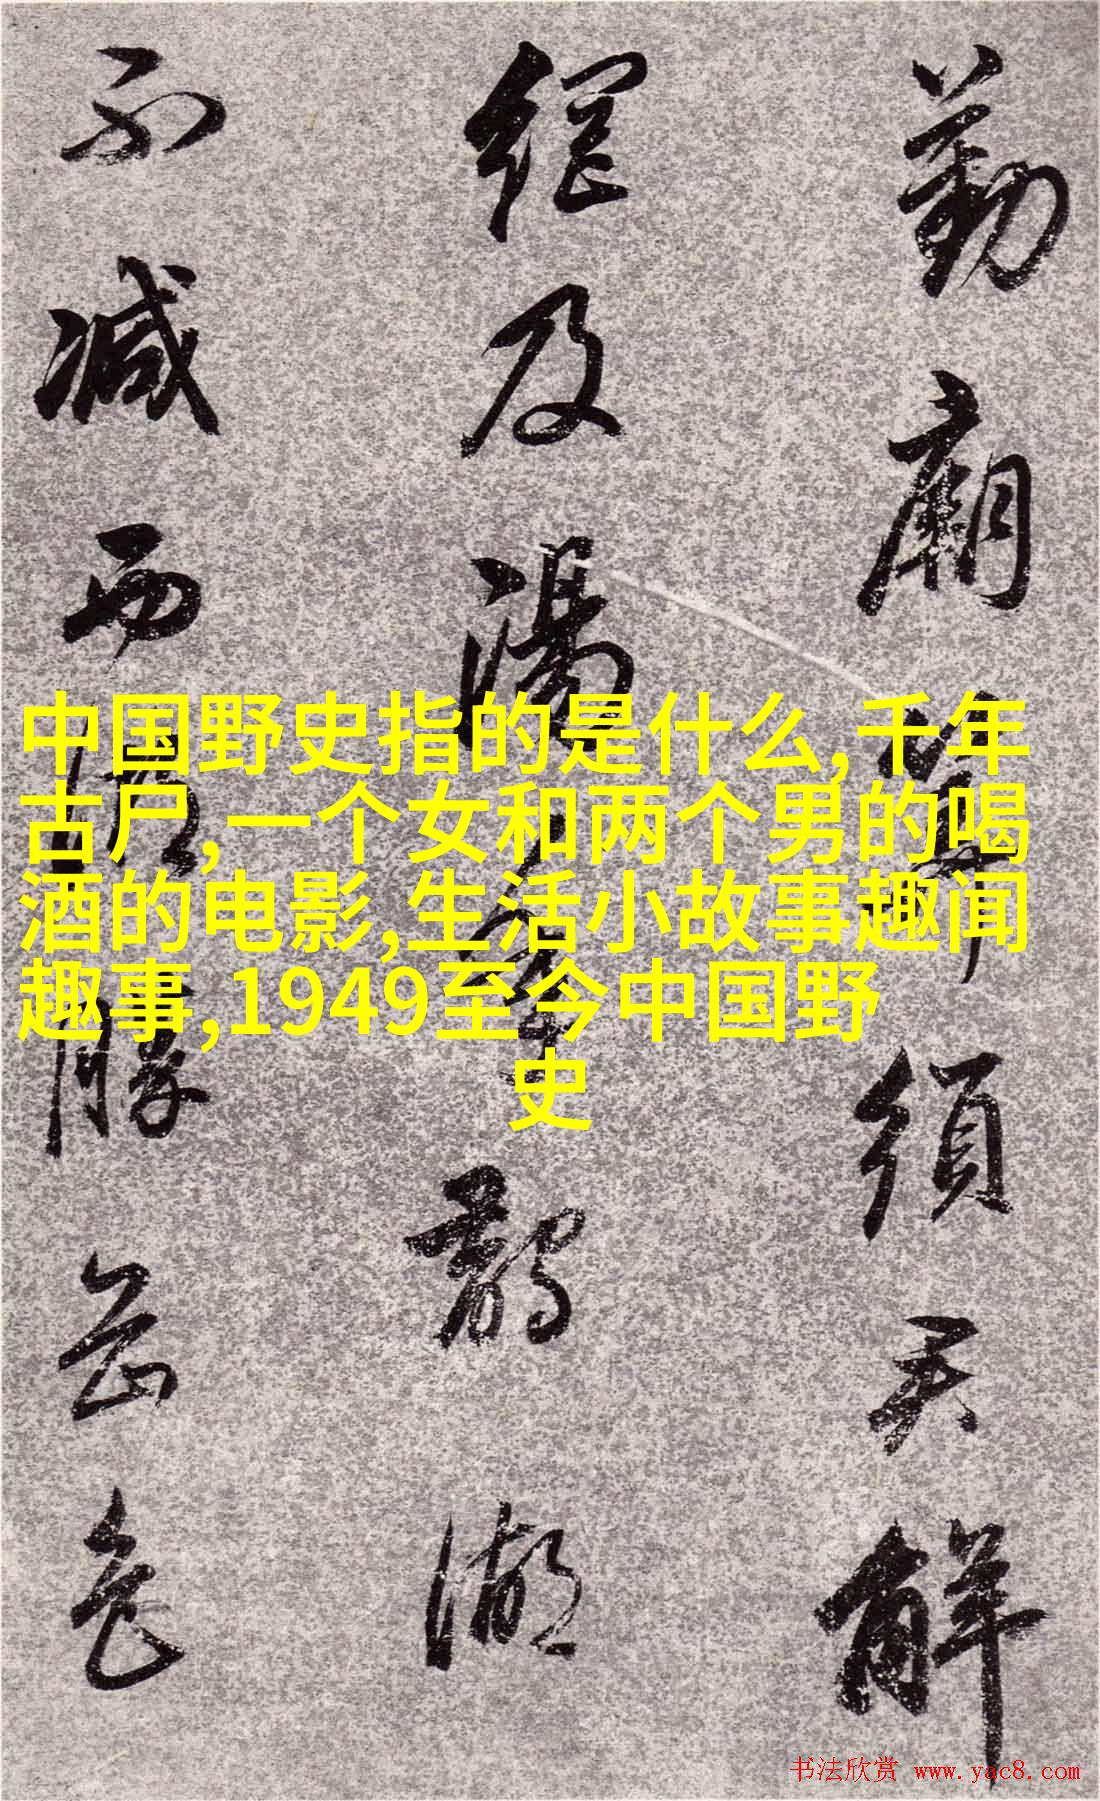 勤廟須君解
網及湯鵲湖
不減西湖勝岳色
中国野史指的是什么,千年
古尸,一个女和两个男的喝
酒的电影,生活小故事趣闻
趣事,1949至今中国野
史
书法欣赏 www.yac8.com